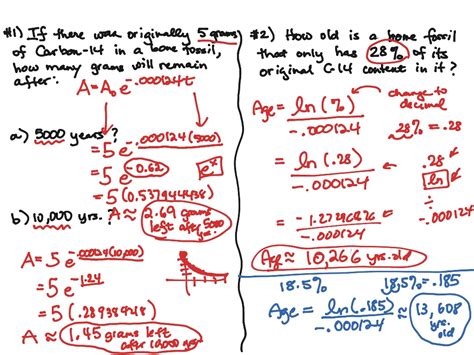 #1) If there were originally 5 grams
of Carbon-14 in a bone fossil,
how many grams will remain
after:
A = A₀ e^-.000124t
a) 5000 years?
= 5 e^-.000124(5000)
= 5 e^-0.62
e^x
= 5 (0.537944438)
A ≈ 2.69 grams
left after 5000
yrs.
b) 10,000 yrs.?
A = 5 e^-.000124(10,000)
= 5 e^-1.24
= 5 (.28938428)
A ≈ 1.45 grams left
after 10000 yrs
#2) How old is a bone fossil
that only has 28% of its
original C-14 content in it?
change to
decimal
Age = ln (%)
-.000124
28% = .28
= ln (.28)
-.000124
.28
ln
÷
-.000124
-.000124
Age ≈ 10,266 yrs. old
18.5%
18.5% = .185
Age = ln(.185)
-.000124
≈ 13,608
yrs.
old